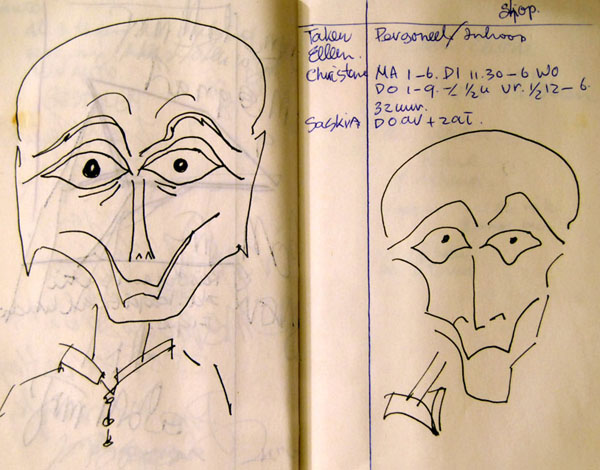 Shop.
Taken Personeel/Inkoop
Ellen.
Christine MA 1-6. DI 11.30-6 WO
DO 1-9. -/- 1/2u Vr. 1/2 12-6.
32 uur.
SaskiA DO av + zat.